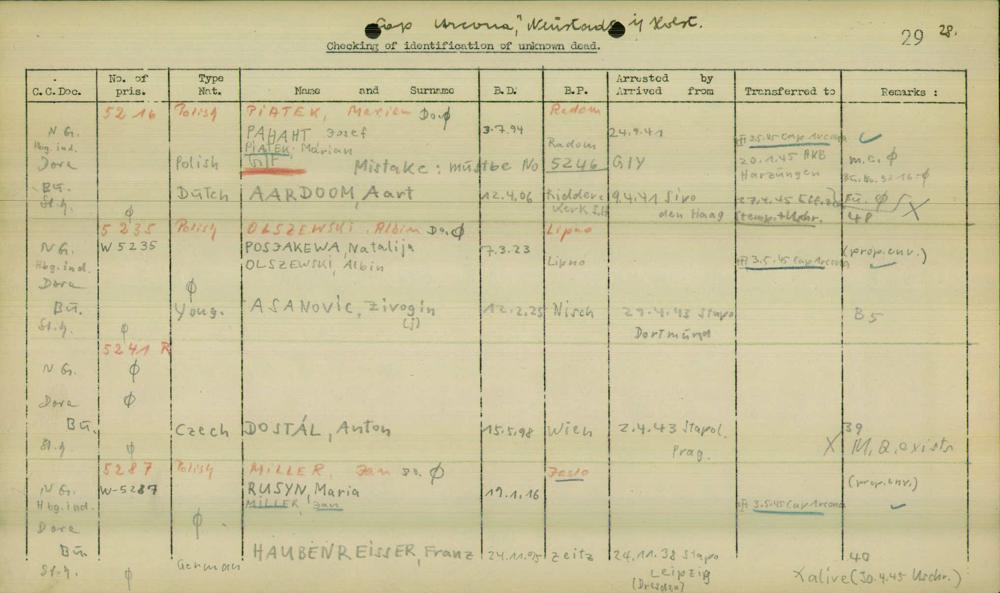 "Cap Arcona", Neustadt i/ Holst.
29 28.
Checking of identification of unknown dead.
C.C.Doc. No. of pris. Type Nat. Name and Surname B.D. B.P. Arrested by Arrived from Transferred to Remarks :
5216 Polish PIATEK, Marian Do. ϕ Radom
N G. PAHAHT Josef 3.7.94 24.9.41
Hbg. ind. PIATEK, Marian Radom 3.5.45 Cap Arcona ✓
Dora Polish Mistake: must be No 5246 GIY 20.1.45 AKB Harzungen m.c. ϕ
Bu. Dutch AARDOOM, Aart 12.4.06 Ridderkerk 9.4.41 Sipo den Haag 27.4.45
St.h. ϕ 48 X
5235 Polish OLSZEWSKI Albin Do. ϕ Lipno
N G. W 5235 POSJAKEWA, Natalija 7.3.23 (prop.env.)
Hbg. ind. OLSZEWSKI, Albin Lipno 3.5.45 Cap Arcona ✓
Dora ϕ
Bu. Youg. ASANOVIC, Zivogin (j) 12.2.25 Nisch 29.4.43 Stapo Dortmund B5
St.h. ϕ
5241 R
N G. ϕ
Dora ϕ
Bu. Czech DOSTÁL, Anton 15.5.98 Wien 2.4.43 Stapol. Prag. 39
St.h. ϕ X M.Q. exists
5287 Polish MILLER, Jan Do. ϕ Jaslo
N G. W-5287 RUSYN, Maria 19.1.16 (prop.env.)
Hbg. ind. MILLER, Jan 3.5.45 Cap Arcona ✓
Dora ϕ
Bu. German HAUBENREISSER, Franz Zeitz 24.11.38 Stapo Leipzig (Dresden) 40
St.h. ϕ X alive (30.4.45 Uschr.)